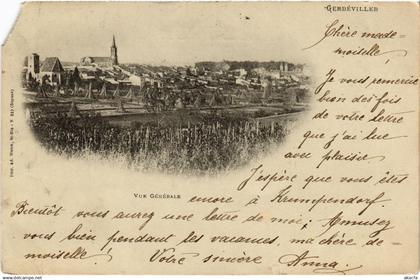 GERBÉVILLER
Chère made-
moiselle,
Je vous remercie
bien des fois
de votre lettre
que j'ai lue
avec plaisir
J'espère que vous êtes
VUE GÉNÉRALE
encore à Krumpendorf.
Bientôt vous aurez une lettre de moi; Amusez
vous bien pendant les vacances, ma chère de-
moiselle. Votre sincère Anna.